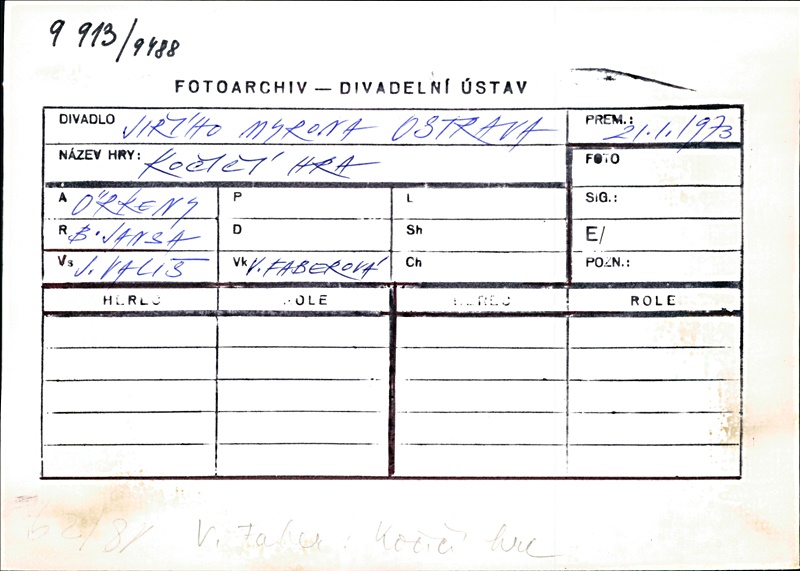 9 913/9488
FOTOARCHIV — DIVADELNÍ ÚSTAV
DIVADLO JIŘÍHO MYRONA OSTRAVA PREM.: 21.1.1973
NÁZEV HRY: KOČIČÍ HRA FOTO
A ÖRKÉNY P L SIG.:
R B. JANSA D Sh E/
Vs J. VALIŠ Vk V. FABEROVÁ Ch POZN.:
HEREC ROLE HEREC ROLE
62/81 V. Faber: Kočičí hra